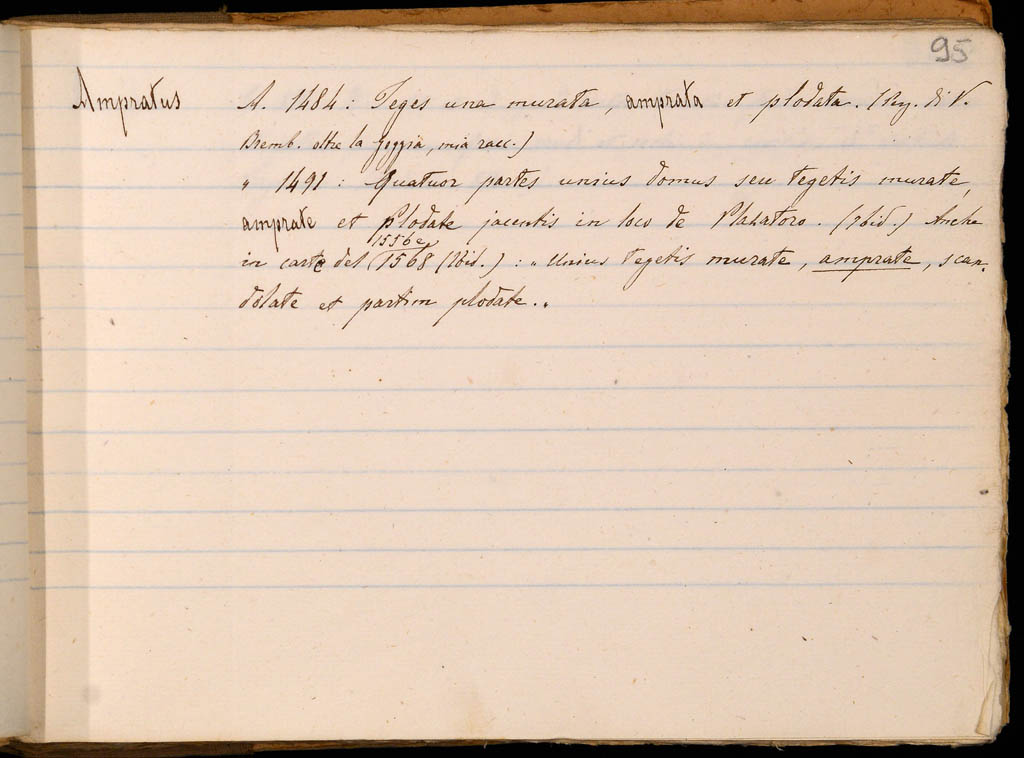 95
Ampratus A. 1484: Teges una murata, amprata et plodata. (Reg. di V.
Bremb. oltre la Goggia, mia racc.)
" 1491: Quatuor partes unius domus seu tegetis murate,
amprate et plodate jacentis in loco de Plazatoro. (Ibid.) Anche
1556 e
in carte del 1568 (Ibid.): "Unius tegetis murate, amprate, scan-
dolate et partim plodate."